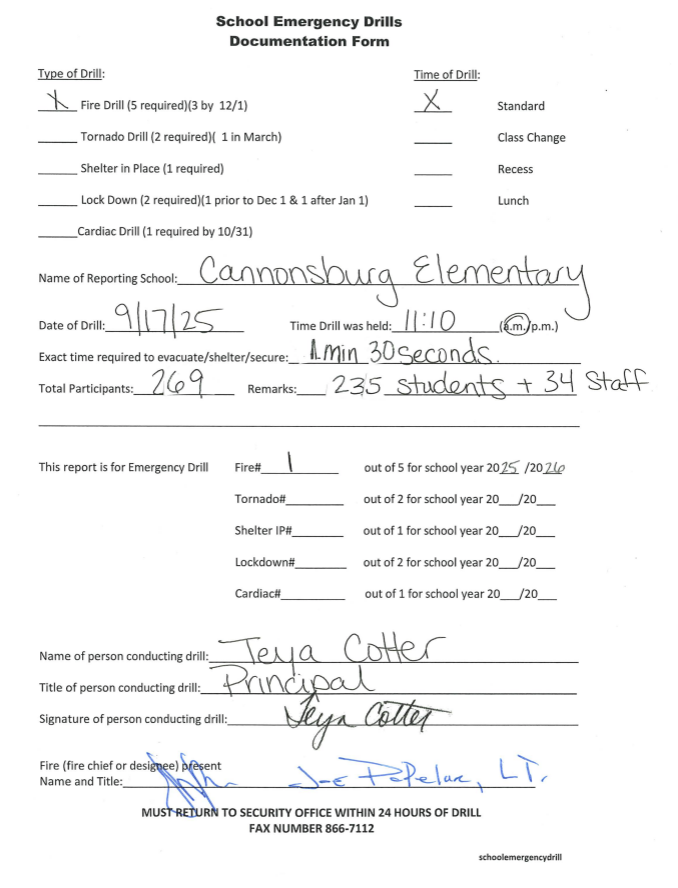 School Emergency Drills
Documentation Form
Type of Drill: Time of Drill:
X Fire Drill (5 required)(3 by 12/1) X Standard
______ Tornado Drill (2 required)( 1 in March) ______ Class Change
______ Shelter in Place (1 required) ______ Recess
______ Lock Down (2 required)(1 prior to Dec 1 & 1 after Jan 1) ______ Lunch
______Cardiac Drill (1 required by 10/31)
Name of Reporting School: Cannonsburg Elementary
Date of Drill: 9/17/25 Time Drill was held: 11:10 (a.m./p.m.)
Exact time required to evacuate/shelter/secure: 1 min 30 seconds.
Total Participants: 269 Remarks: 235 students + 34 Staff
This report is for Emergency Drill Fire# 1 out of 5 for school year 2025 /2026
Tornado#________ out of 2 for school year 20___/20___
Shelter IP#________ out of 1 for school year 20___/20___
Lockdown#________ out of 2 for school year 20___/20___
Cardiac#________ out of 1 for school year 20___/20___
Name of person conducting drill: Teya Cotter
Title of person conducting drill: Principal
Signature of person conducting drill: Teya Cotter
Fire (fire chief or designee) present
Name and Title: Joe , LT.
MUST RETURN TO SECURITY OFFICE WITHIN 24 HOURS OF DRILL
FAX NUMBER 866-7112
schoolemergencydrill